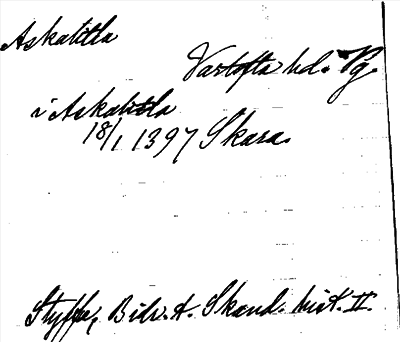 Askatitla
Vartofta hd. Vg.
i Askatitla
18/1 1397 Skara.
Styffe, Bidr. t. Skand. hist. II.